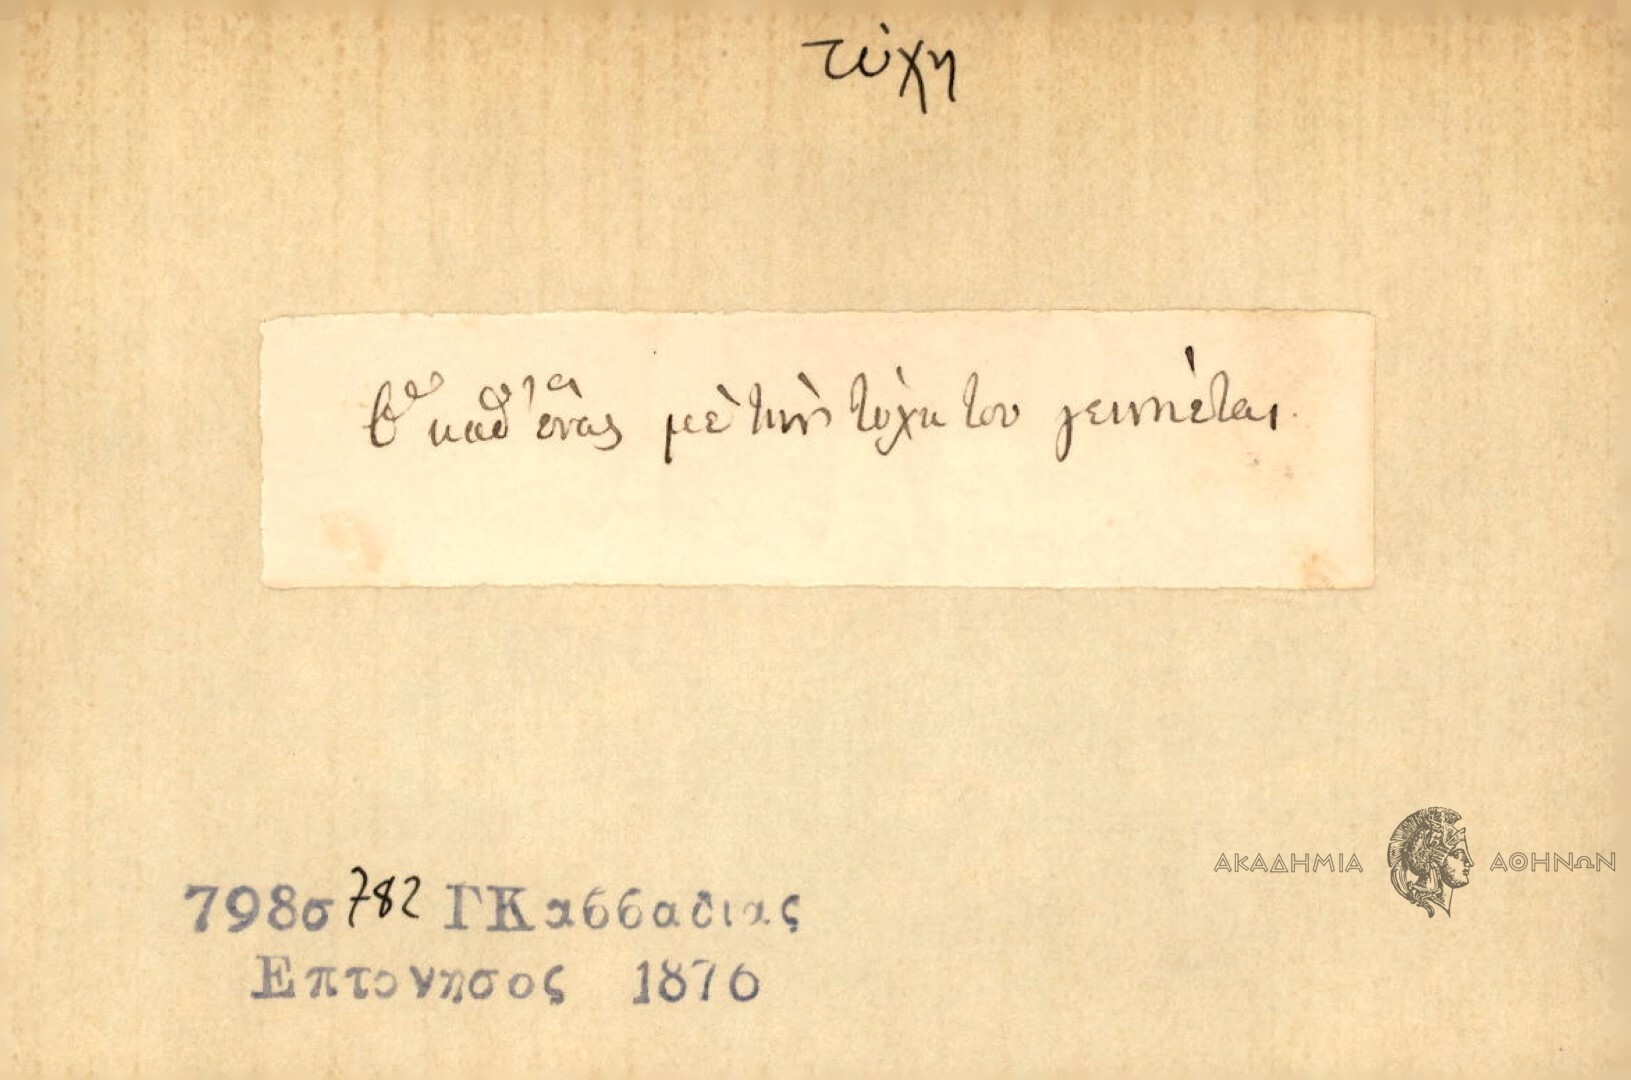 τύχη
Ὁ καθ' ἕνας μὲ τὴν τύχη του γεννιέται.
798σ 782 ΓΚασσαδιας
Επτονησος 1876
ΑΚΑΔΗΜΙΑ ΑΘΗΝΩΝ